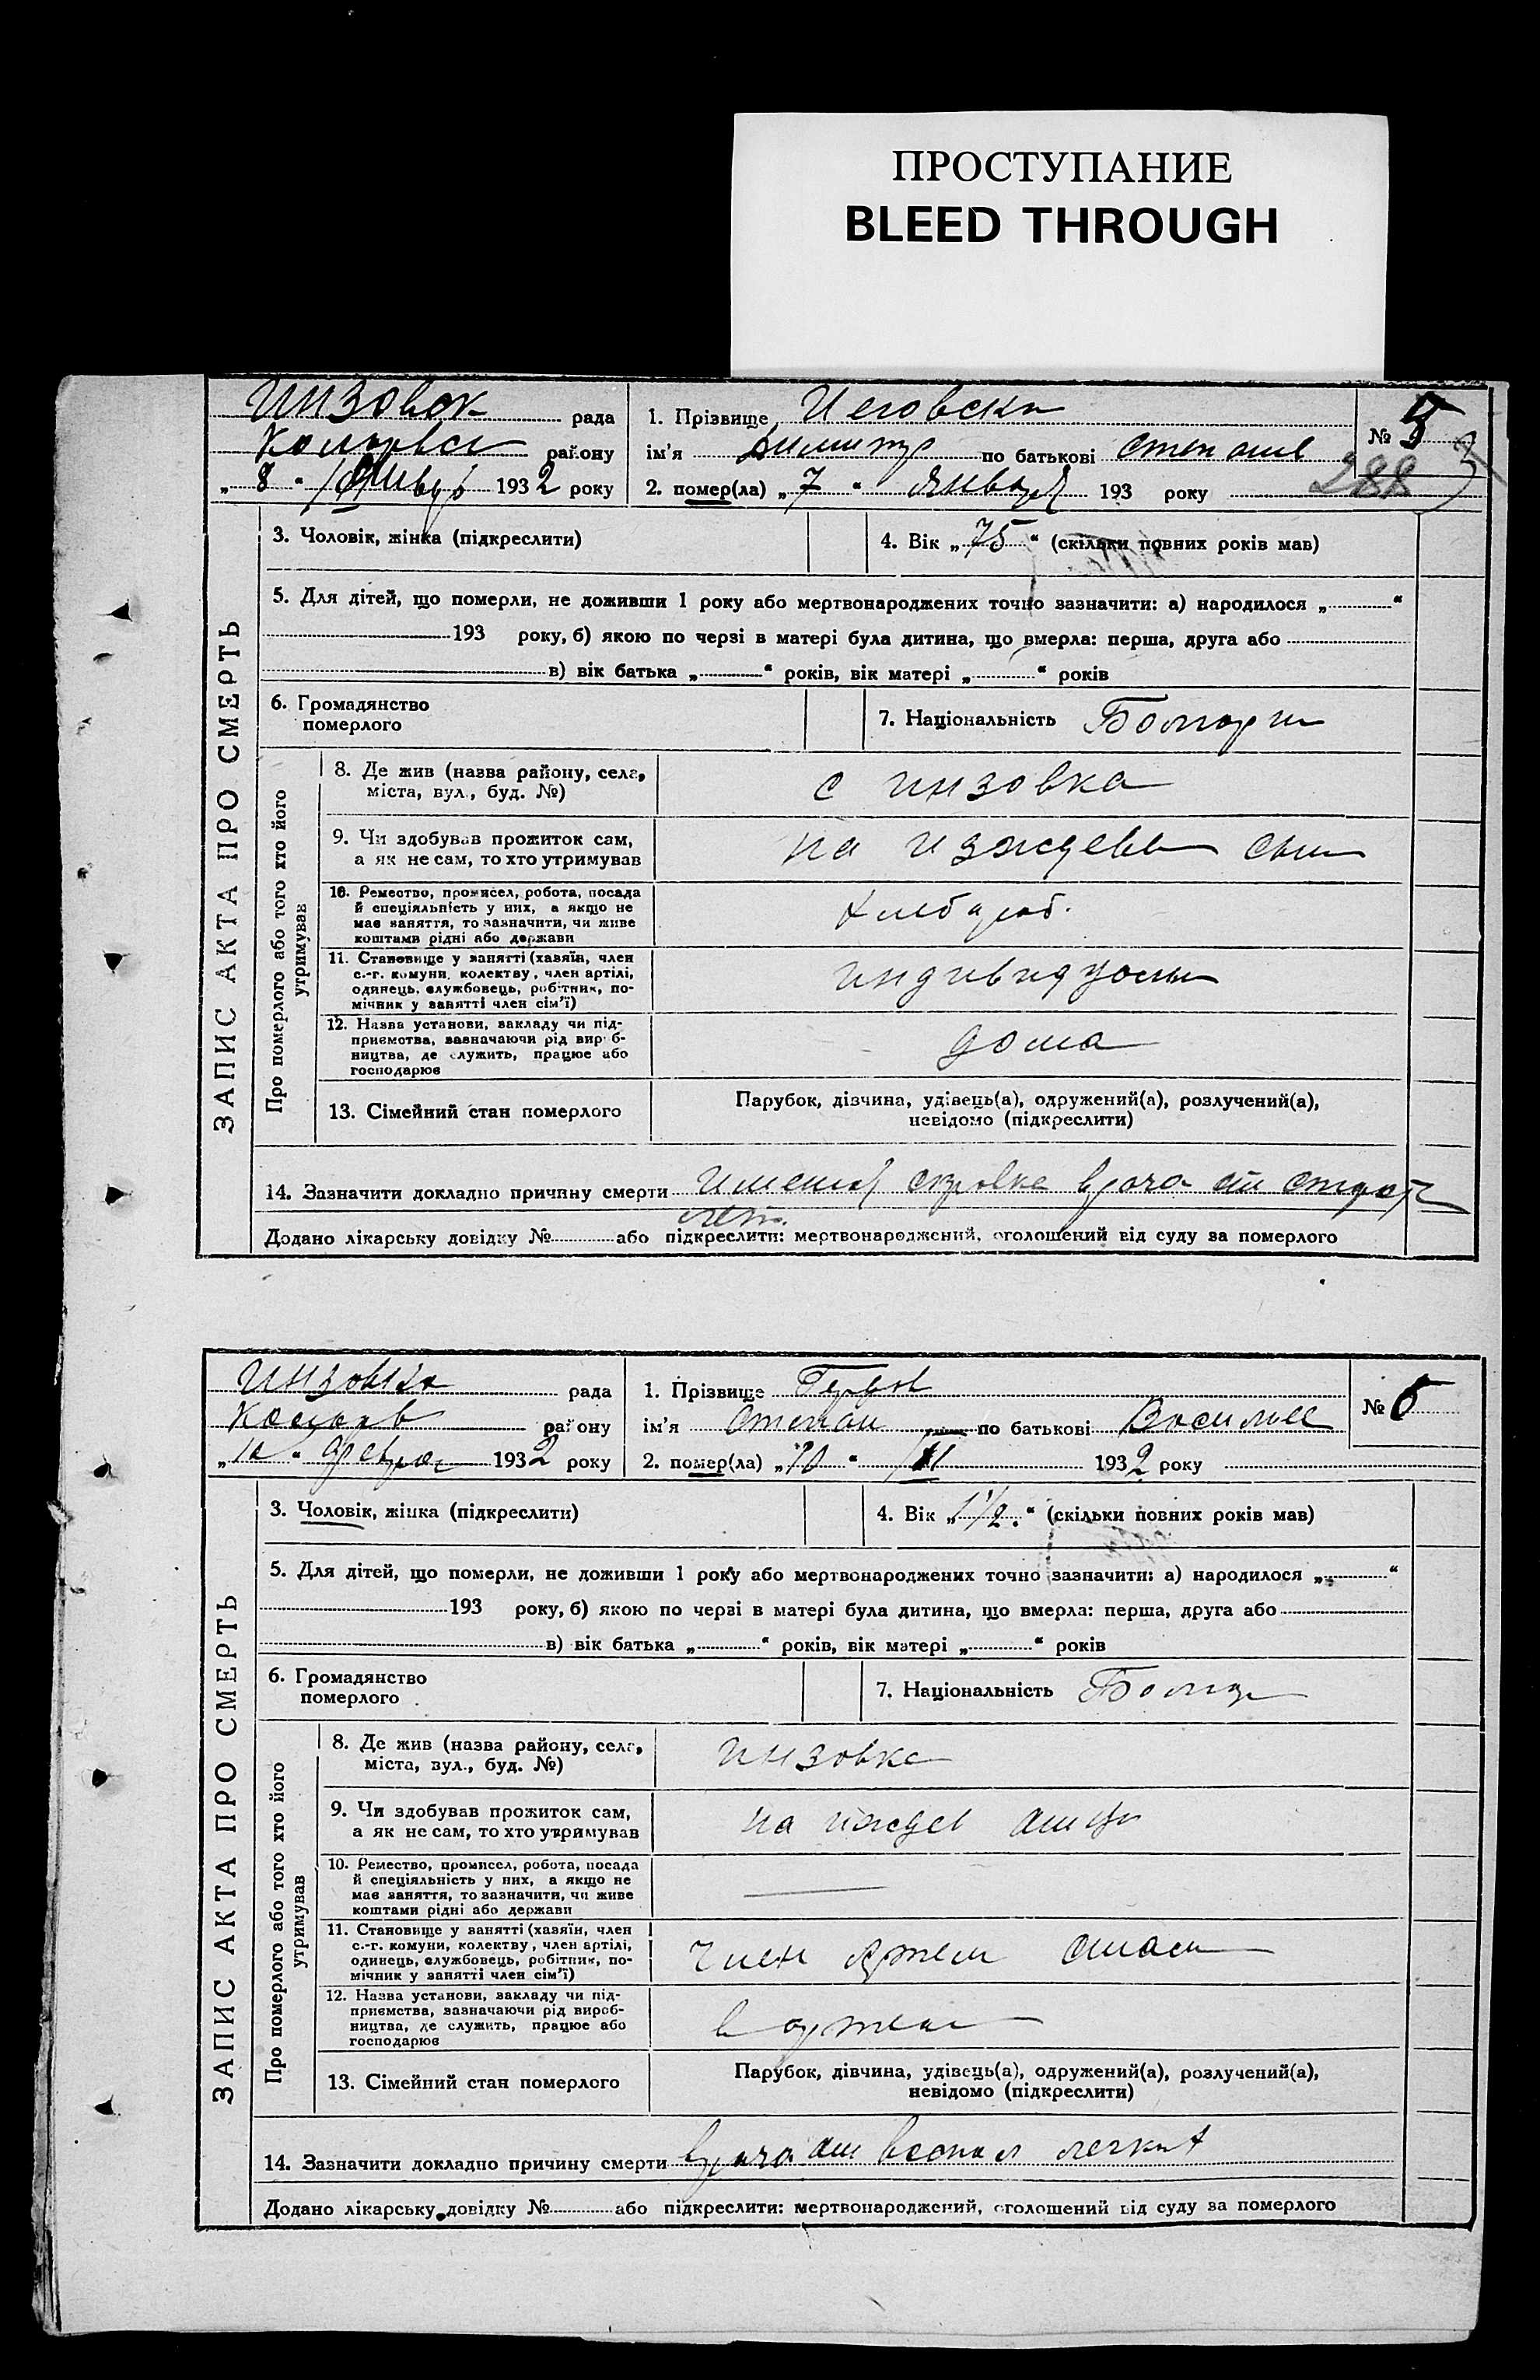 ПРОСТУПАНИЕ
BLEED THROUGH
Инзовск рада
района
району
„ 8 “ Январь 1932 року
1. Прізвище
ім’я Димитр по батькові Степанов
2. помер(ла) „ 7 “ Января 193 року
№ 5
288
ЗАПИС АКТА ПРО СМЕРТЬ
3. Чоловік, жінка (підкреслити)
4. Вік „ 75 “ (скільки повних років мав)
5. Для дітей, що померли, не доживши 1 року або мертвонароджених точно зазначити: а) народилося „ “
193 року, б) якою по черзі в матері була дитина, що вмерла: перша, друга або
в) вік батька „ “ років, вік матері „ “ років
6. Громадянство
померлого
7. Національність Болгарин
Про померлого або того хто його
утримував
8. Де жив (назва району, села,
міста, вул., буд. №)
с Инзовка
9. Чи здобував прожиток сам,
а як не сам, то хто утримував
на
10. Ремество, промисел, робота, посада
й спеціяльність у них, а якщо не
має заняття, то зазначити, чи живе
коштами рідні або держави
хлебороб.
11. Становище у занятті (хазяїн, член
с.-г. комуни, колективу, член артілі,
одинець, службовець, робітник, по-
мічник у занятті член сім’ї)
12. Назва установи, закладу чи під-
приємства, зазначаючи рід вироб-
ництва, де служить, працює або
господарює
дома
13. Сімейний стан померлого
Парубок, дівчина, удівець(а), одружений(а), розлучений(а),
невідомо (підкреслити)
14. Зазначити докладно причину смерти
Додано лікарську довідку № або підкреслити: мертвонароджений, оголошений від суду за померлого
Инзовка рада
району
„ 10 “ 1932 року
1. Прізвище
ім’я Степан по батькові
2. помер(ла) „ 10 “ II 1932 року
№ 6
ЗАПИС АКТА ПРО СМЕРТЬ
3. Чоловік, жінка (підкреслити)
4. Вік „ 1 1/2. “ (скільки повних років мав)
5. Для дітей, що померли, не доживши 1 року або мертвонароджених точно зазначити: а) народилося „ “
193 року, б) якою по черзі в матері була дитина, що вмерла: перша, друга або
в) вік батька „ “ років, вік матері „ “ років
6. Громадянство
померлого
7. Національність Болгар
Про померлого або того хто його
утримував
8. Де жив (назва району, села,
міста, вул., буд. №)
Инзовка
9. Чи здобував прожиток сам,
а як не сам, то хто утримував
на
10. Ремество, промисел, робота, посада
й спеціяльність у них, а якщо не
має заняття, то зазначити, чи живе
коштами рідні або держави
11. Становище у занятті (хазяїн, член
с.-г. комуни, колективу, член артілі,
одинець, службовець, робітник, по-
мічник у занятті член сім’ї)
член
12. Назва установи, закладу чи під-
приємства, зазначаючи рід вироб-
ництва, де служить, працює або
господарює
в
13. Сімейний стан померлого
Парубок, дівчина, удівець(а), одружений(а), розлучений(а),
невідомо (підкреслити)
14. Зазначити докладно причину смерти врача
Додано лікарську довідку № або підкреслити: мертвонароджений, оголошений від суду за померлого